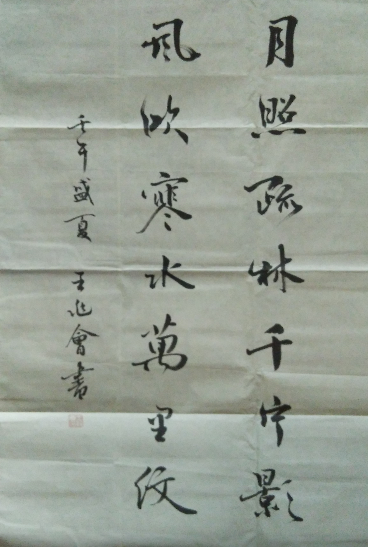 月照疏林千片影
風吹寒水萬里紋
壬午盛夏 王兆會書